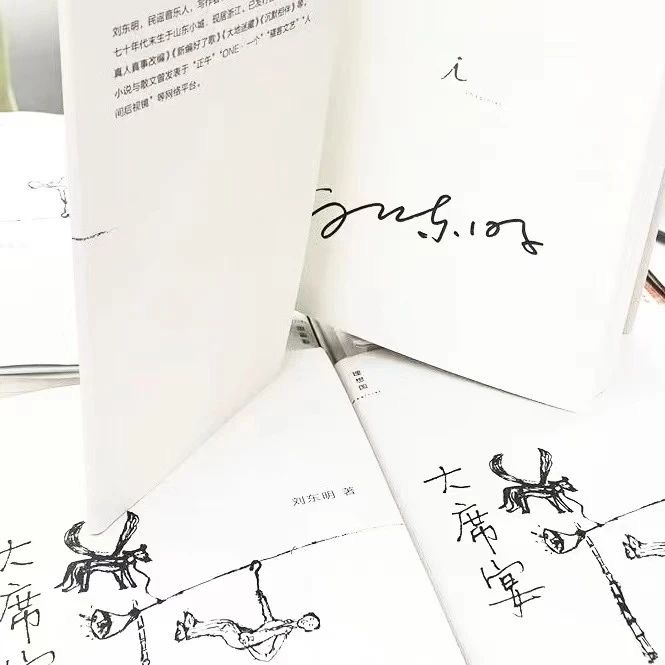 刘东明，民谣音乐人，写作者
七十年代末生于山东小城，现居浙江，已发行
真人真事改编》《新编好了歌》《大地迷藏》《沉默相伴》等，
小说与散文曾发表于“正午”“ONE·一个”“骚客文艺”“人
间后视镜”等网络平台。
i
刘东明
理想国
刘东明 著
大席宴
大席宴